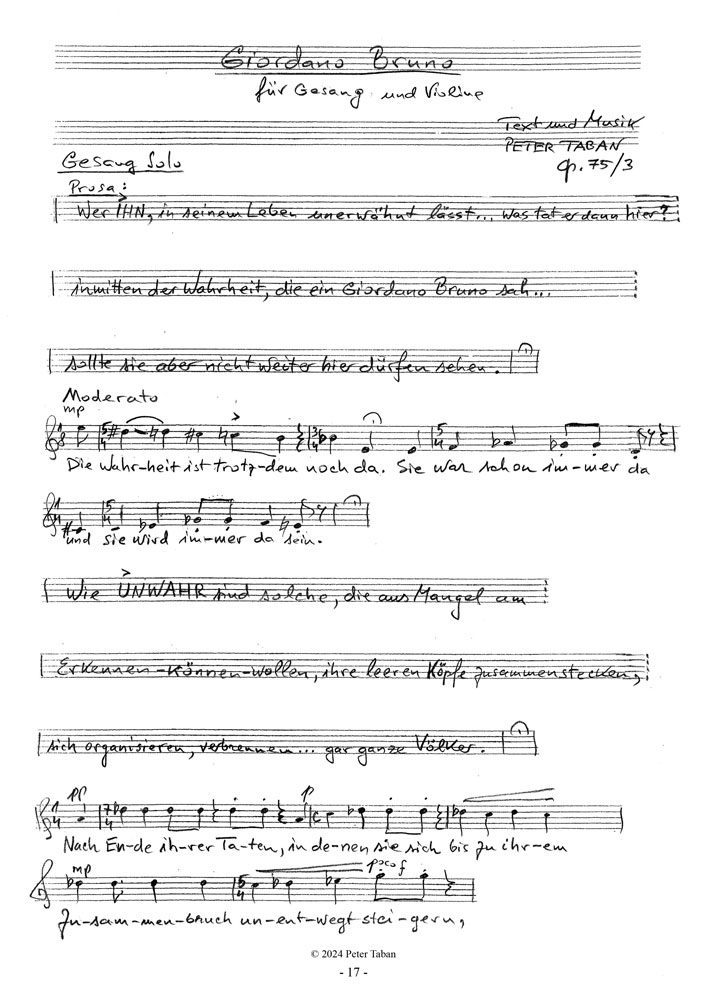 Giordano Bruno
für Gesang und Violine
Text und Musik
PETER TABAN
Op. 75/3
Gesang Solo
Prosa:
Wer IHN, in seinem Leben unerwähnt lässt... was tat er dann hier?
inmitten der Wahrheit, die ein Giordano Bruno sah...
sollte sie aber nicht weiter hier dürfen sehen.
Moderato
mp
Die Wahr-heit ist trotz-dem noch da. Sie war schon im-mer da
und sie wird im-mer da sein.
Wie UNWAHR sind solche, die aus Mangel am
Erkennen-können-wollen, ihre leeren Köpfe zusammenstecken,
sich organisieren, verbrennen... gar ganze Völker.
pp p
Nach En-de ih-rer Ta-ten, in de-nen sie sich bis zu ihr-em
mp poco f
Zu-sam-men-bruch un-ent-wegt stei-gern,
© 2024 Peter Taban
- 17 -